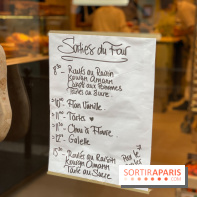 Sorties du Four
8h30 - Roulés au Raisin
Kouign Amann
Chaussons aux Pommes
Tarte au Sucre
10h00 - Flan Vanille
11h00 - Tartes ♥
11h30 - Chou à l'
12h00 - Galette
15h00 - Roulés au Raisin
Kouign Amann
Tarte au Sucre
SORTIRAPARIS